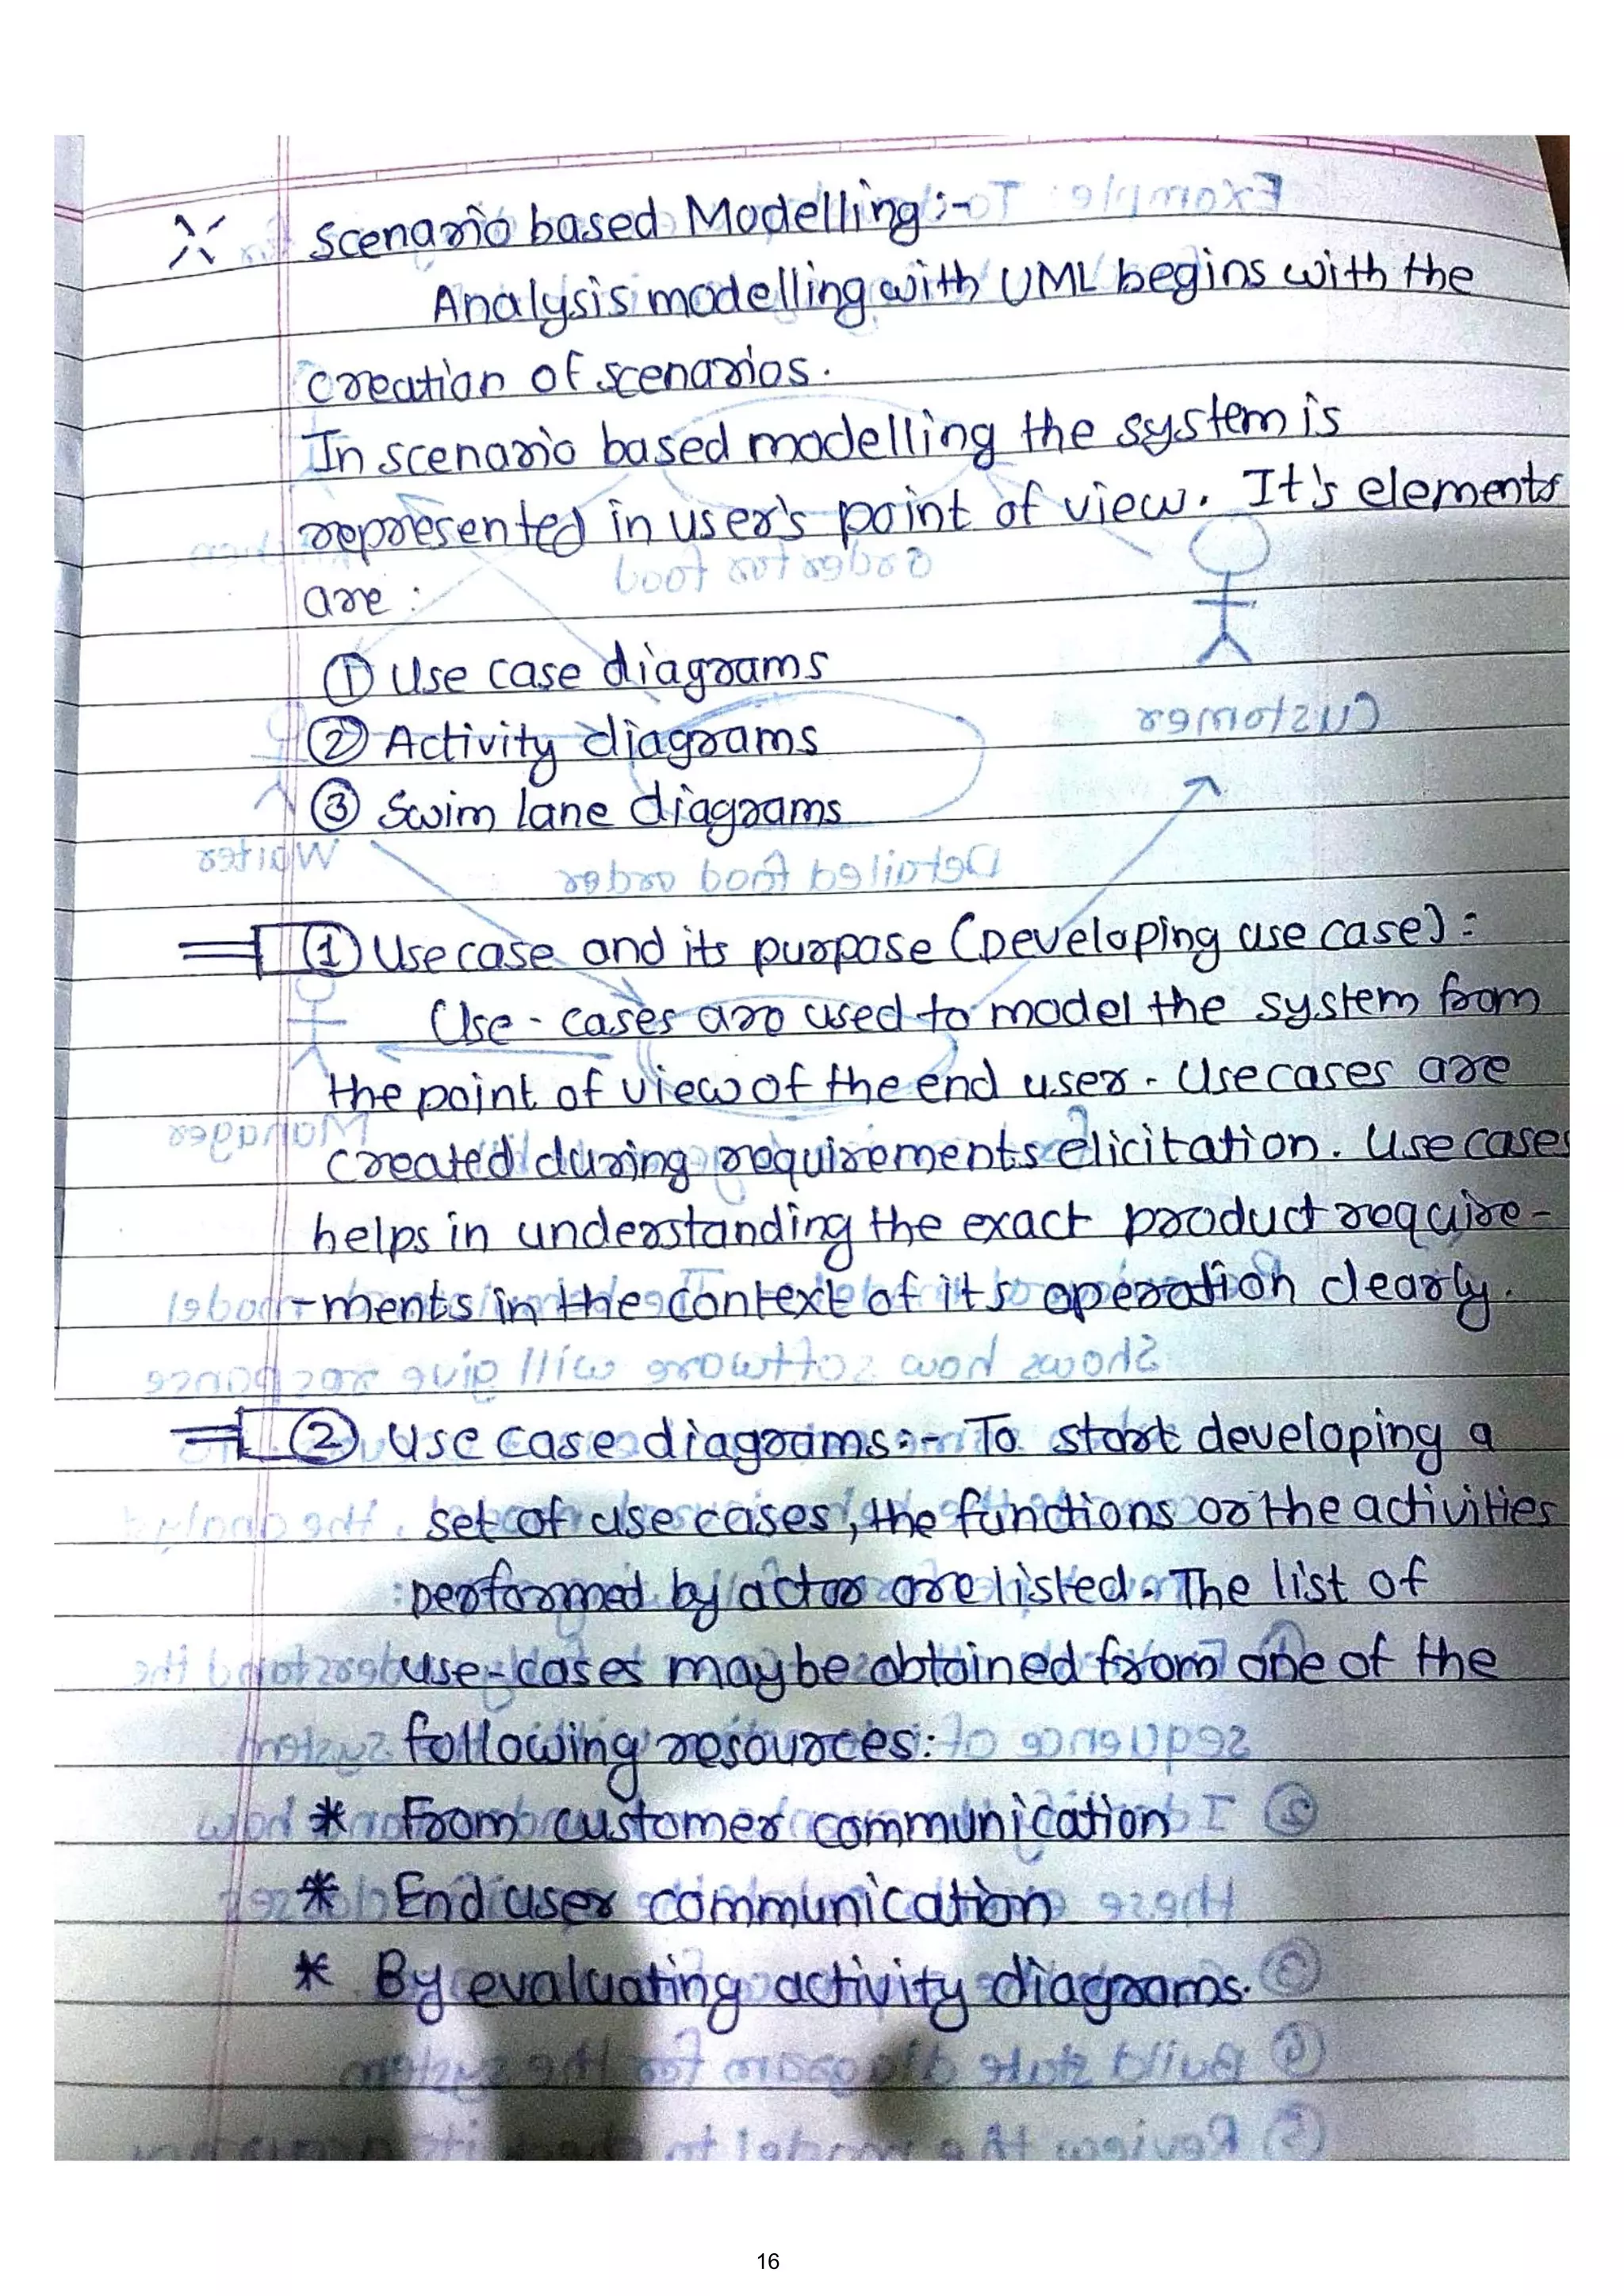 Scenario based Modelling :-
Analysis modelling with UML begins with the
creation of scenarios.
In scenario based modelling the system is
represented in user's point of view. It's elements
are :
① Use case diagrams
② Activity diagrams
③ Swim lane diagrams
① Use case and its purpose (Developing use case) :
Use - cases are used to model the system from
the point of view of the end user. Use cases are
created during requirements elicitation. Use cases
helps in understanding the exact product require-
-ments in the context of its operation clearly.
② Use case diagrams :- To start developing a
set of use cases, the functions or the activities
performed by actor are listed. The list of
use-cases may be obtained from one of the
following resources:
* From customer communication
* End user communication
* By evaluating activity diagrams.
16